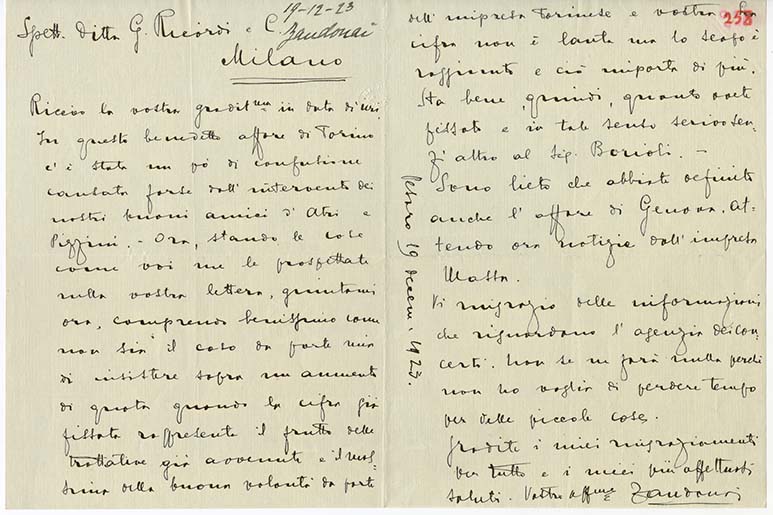 19-12-23
Spett. Ditta G. Ricordi e C. Zandonai
Milano
Ricevo la vostra gradit.ma in data di ieri.
In questo benedetto affare di Torino
c'è stata un pò di confusione
causata forse dall'intervento dei
nostri buoni amici d'Atri e
Pizzini. - Ora, stando le cose
come voi me le prospettate
nella vostra lettera, giuntami
ora, comprendo benissimo come
non sia il caso da parte mia
di insistere sopra un aumento
di quota quando la cifra già
fissata rappresenta il frutto delle
trattative già avvenute e il mas-
simo della buona volontà da parte
258
dell'impresa torinese e vostra. La
cifra non è lauta ma lo scopo è
raggiunto e ciò importa di più.
Sta bene, quindi, quanto avete
fissato e in tale senso scrivo sen-
z'altro al Sig. Borioli. -
Sono lieto che abbiate definito
anche l'affare di Genova. At-
tendo ora notizie dall'impresa
Massa.
Vi ringrazio delle informazioni
che riguardano l'agenzia dei con-
certi. Non se ne farà nulla perché
non ho voglia di perdere tempo
per delle piccole cose.
Gradite i miei ringraziamenti
per tutto e i miei più affettuosi
saluti. Vostro aff.mo Zandonai
Pesaro 19 decem. 1923.